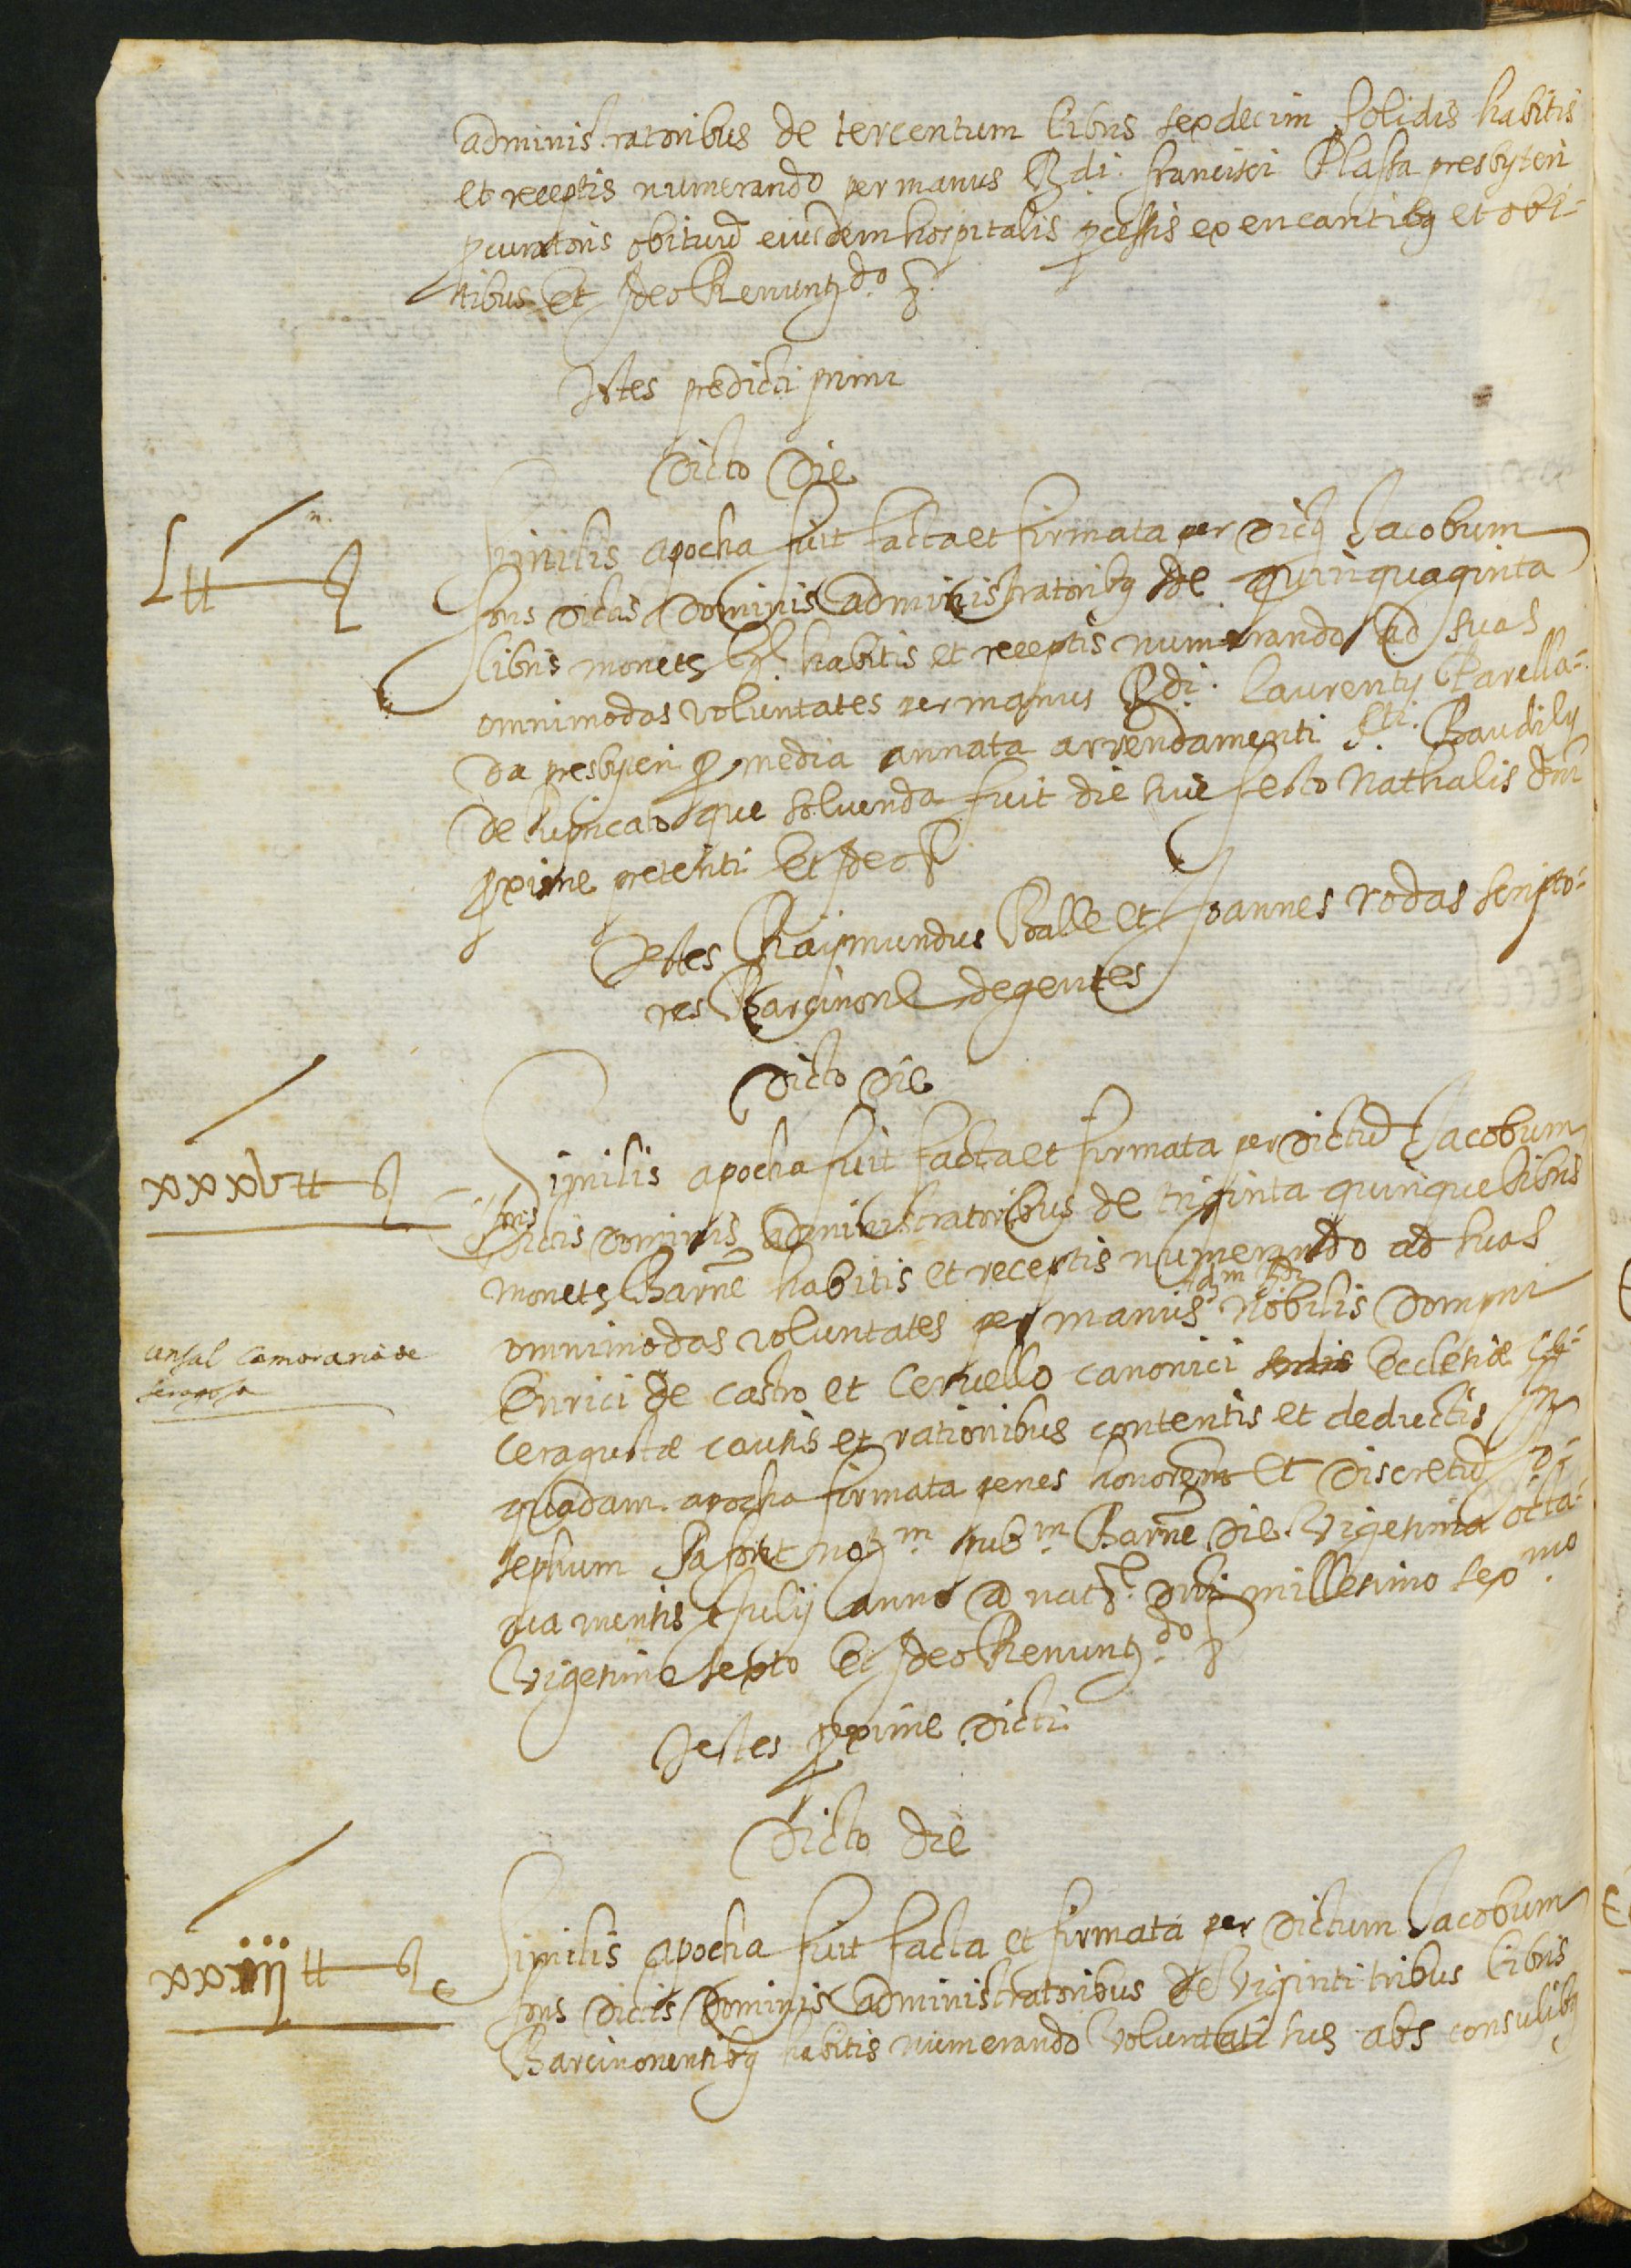 administratoribus de tercentum libris sexdecim solidis habitis
et receptis numerando per manus Rdi. francisci Plassa presbyteri
pcuratoris obituū eiusdem hospitalis pcessis ex encantibꝫ et obi-
tibus et Ideo Renuntꝫdo. ꝫ.
Testes predicti primi
Dicto Die
Similis apocha fuit facta et firmata per dictꝫ Jacobum
fons dictis Dominis administratoribꝫ de quinquaginta
libris monetꝫ habitis et receptis numerando ad suas
omnimodas voluntates per manus Rdi. laurentij Parella-
da presbyteri ꝑ media annata arrendamenti Sti. Baudilij
de lupricato que soluenda fuit die siue festo Nathalis dni
pxime preteriti Et Ideo ꝫ
Testes Raijmundus Balle et Joannes rodas scripto-
res Barcinone degentes
L tt ß
Dicto Die
Similis apocha fuit facta et firmata per dictū Jacobum
fons
dictis dominis administratoribus de triginta quinque libris
monetꝫ Barne habitis et receptis numerando ad suas
omnimodas voluntates per manus adm Rdi nobilis Dompni
Enrici de castro et Ceruello canonici sedis Ecclesiæ Cè-
ceragustæ causis et rationibus contentis et deductis In
quadam apocha firmata penes honorem et discretū Jo-
sephum notꝫm. pub.m Barne die vigesima octa-
ua mensis Julij anno a natꝫ. dni millesimo sexmo.
vigesimo sexto Et Ideo Renuntꝫ.do ꝫ
Testes pxime dicti
xxxv tt ß
cansal Camoraria de
seragosa
Dicto die
Similis apocha fuit facta et firmata per dictum Jacobum
fons dictis Dominis administratoribus de viginti tribus libris
Barcinonensibꝫ habitis numerando voluntati sue abs consulibꝫ
xxiij tt ß